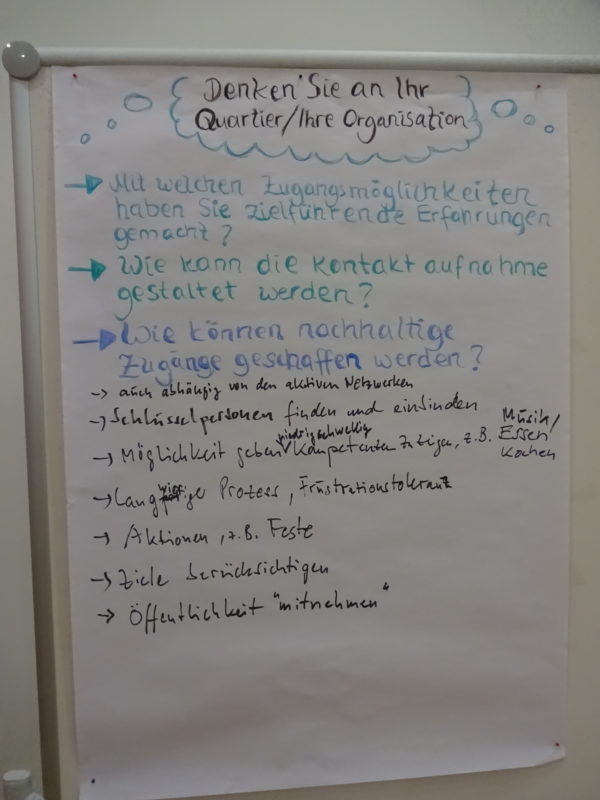 Denken Sie an Ihr
Quartier/Ihre Organisation
Mit welchen Zugangsmöglichkeiten
haben Sie zielführende Erfahrungen
gemacht?
Wie kann die Kontaktaufnahme
gestaltet werden?
Wie können nachhaltige
Zugänge geschaffen werden?
-> auch abhängig von den aktiven Netzwerken
-> Schlüsselpersonen finden und einbinden
niedrigschwellig
-> Möglichkeit geben Kompetenzen zu zeigen, z.B. Musik/
Essen
kochen
-> Langwierige Prozess, Frustrationstoleranz
-> Aktionen, z.B. Feste
-> Ziele berücksichtigen
-> Öffentlichkeit "mitnehmen"